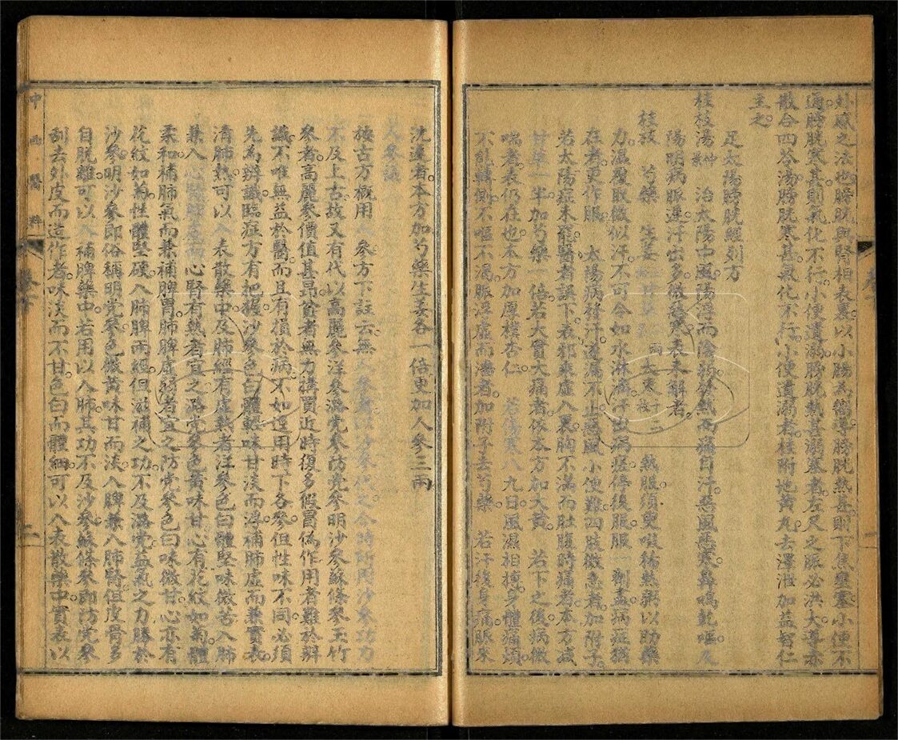 外感之法也膀胱與腎相表裏以小腸為衛導膀胱熱甚則下焦壅塞小便不
通膀胱寒甚則氣化不行小便遺溺膀胱熱甚溺塞者左尺之脈必洪大導赤
散合四苓湯膀胱寒甚氣化不行小便遺溺者桂附地黃丸去澤泄加益智仁
主之
足太陽膀胱經列方
桂枝湯 治太陽中風陽浮而陰弱發熱而痛自汗惡風惡寒鼻鳴乾嘔及
陽明病脈遲汗出多微惡寒表未解者
桂枝 芍藥 生姜 大棗 熱服須臾啜稀熱粥以助藥
力溫覆取微似汗不可令如水淋漓汗出病痊停後服服一劑盡病症猶
在者更作服 太陽病發汗遂漏不止惡風小便難四肢微急者加附子
若太陽症未罷醫者誤下表邪乘虛入裏胸不滿而肚腹時痛者本方減
甘草一半加芍藥一倍若大實大痛者依本方加大黃 若下之後病微
喘者表仍在也本方加厚樸杏仁 若傷寒八九日風濕相搏身體痛煩
不能轉側不嘔不渴脈浮虛而濇者加附子去芍藥 若汗後身痛脈來
沈遲者本方加芍藥生姜各一倍更加人參三兩
按古方概用 參方下註云無 沙參代之今時所用沙參功力
不及上古故又有代以高麗參洋參潞党參防党參明沙參蘇條參玉竹
參者高麗參價值甚昂貧者無力搆買近時復多假冒偽作用者難於辨
識不唯無益於醫而且有損於病不如選用時下各參但性味不同必須
先為辨識臨症方有把握沙參色白體輕味甘淡而浮補肺虛而兼實表
清肺熱可以入表散藥中及肺經有虛熱者洋參色白體堅味微苦入肺
兼入 心腎有熱者宜之潞党參色黃味甘心有花紋如菊體
柔和補肺氣而兼補脾胃肺脾虛弱者宜之防党參色白味微甘心亦有
花紋如菊性體堅硬入肺脾兩經但滋補之功不及潞党益氣之力勝於
沙參明沙參即俗稱明党參色微黃味甘而淡入脾兼入肺腎但皮骨多
自脫離可以入補脾藥中若用以入肺其功不及沙參蘇條參即防党參
刮去外皮而造作者味淡而不甘色白而體細可以入表散藥中實表以
中西醫粹